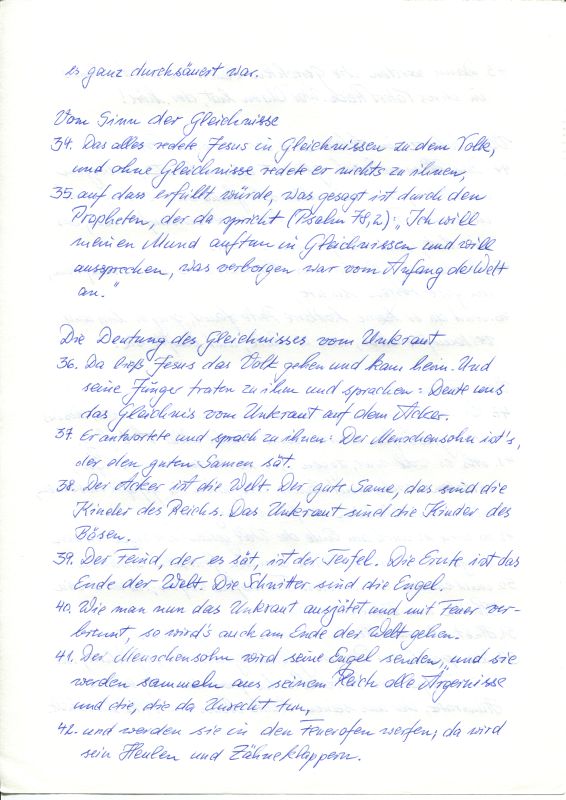 es ganz durchsäuert war.
Vom Sinn der Gleichnisse
34. Das alles redete Jesus in Gleichnissen zu dem Volke,
und ohne Gleichnisse redete er nichts zu ihnen,
35. auf dass erfüllt würde, was gesagt ist durch den
Propheten, der da spricht (Psalm 78,2): "Ich will
meinen Mund auftun in Gleichnissen und will
aussprechen, was verborgen war vom Anfang der Welt
an."
Die Deutung des Gleichnisses vom Unkraut
36. Da ließ Jesus das Volk gehen und kam heim. Und
seine Jünger traten zu ihm und sprachen: Deute uns
das Gleichnis vom Unkraut auf dem Acker.
37. Er antwortete und sprach zu ihnen: Der Menschensohn ist's,
der den guten Samen sät.
38. Der Acker ist die Welt. Der gute Same, das sind die
Kinder des Reichs. Das Unkraut sind die Kinder des
Bösen.
39. Der Feind, der es sät, ist der Teufel. Die Ernte ist das
Ende der Welt. Die Schnitter sind die Engel.
40. Wie man nun das Unkraut ausjätet und mit Feuer ver-
brennt, so wird's auch am Ende der Welt gehen.
41. Der Menschensohn wird seine Engel senden, und sie
werden sammeln aus seinem Reich alle Ärgernisse
und die, die da Unrecht tun,
42. und werden sie in den Feuerofen werfen; da wird
sein Heulen und Zähneklappern.